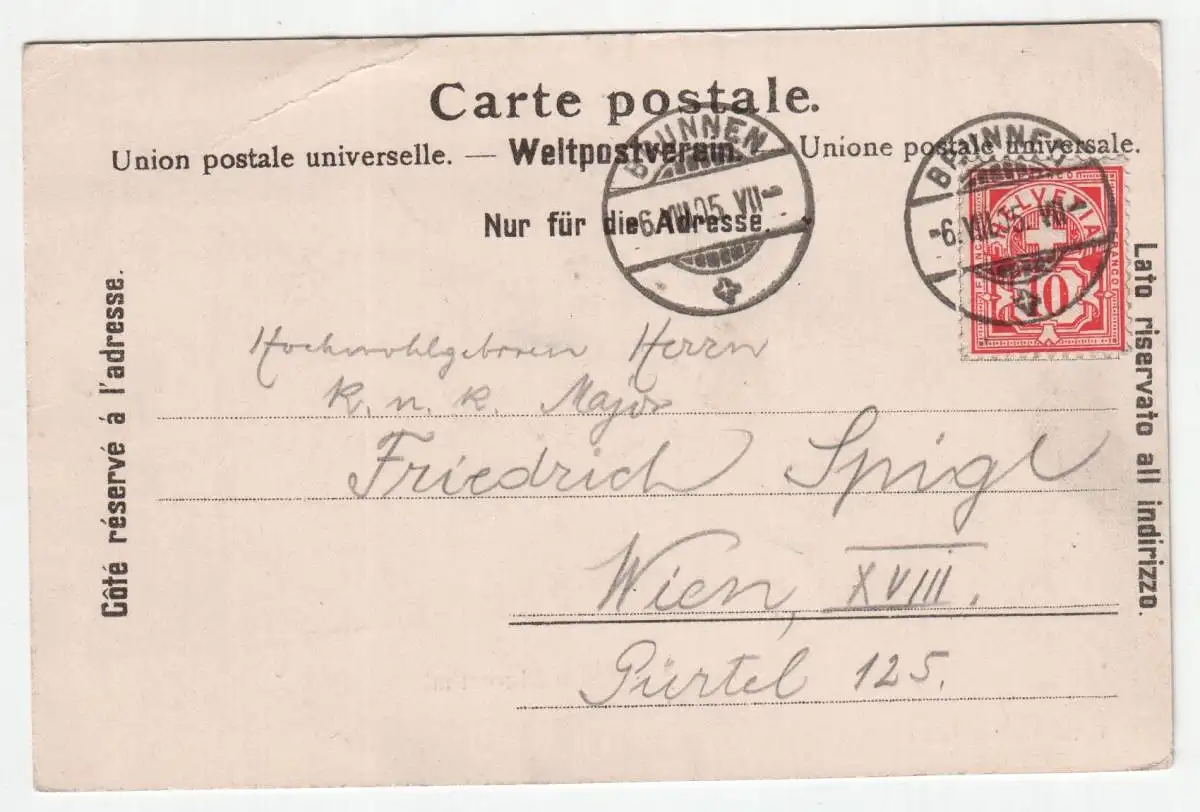 Carte postale.
Union postale universelle. — Weltpostverein. — Unione postale universale.
Nur für die Adresse.
BRUNNEN
-6.VIII.05.VII-
BRUNNEN
-6.VIII.05.VII-
HELVETIA
FRANCO
10
Côté réservé á l'adresse.
Lato riservato all indirizzo.
Hochwohlgeboren Herrn
K. u. K. Major
Friedrich Spigl
Wien, XVIII.
Gürtel 125.